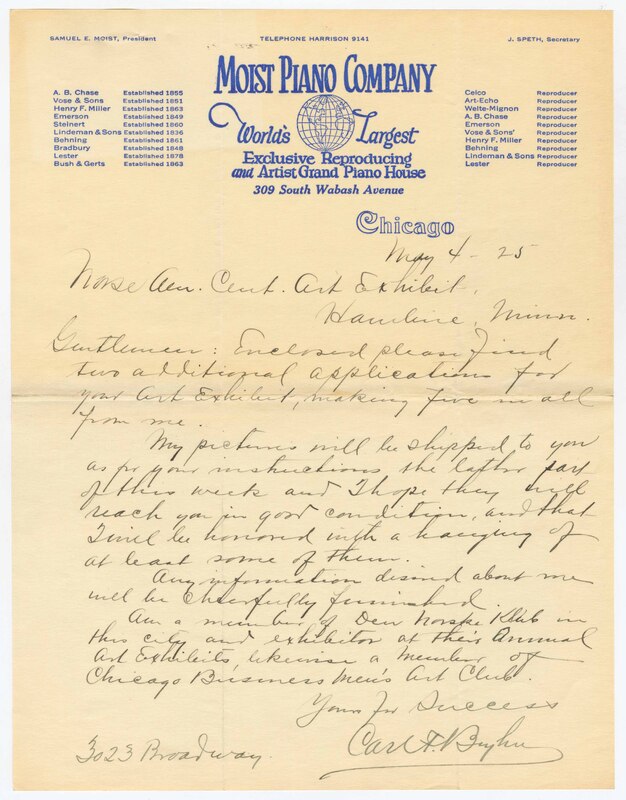 SAMUEL E. MOIST, President
TELEPHONE HARRISON 9141
J. SPETH, Secretary
MOIST PIANO COMPANY
World's Largest
Exclusive Reproducing
and Artist Grand Piano House
309 South Wabash Avenue
Chicago
A. B. Chase Established 1855
Vose & Sons Established 1851
Henry F. Miller Established 1863
Emerson Established 1849
Steinert Established 1860
Lindeman & Sons Established 1836
Behning Established 1861
Bradbury Established 1848
Lester Established 1878
Bush & Gerts Established 1863
Celco Reproducer
Art-Echo Reproducer
Welte-Mignon Reproducer
A. B. Chase Reproducer
Emerson Reproducer
Vose & Sons' Reproducer
Henry F. Miller Reproducer
Behning Reproducer
Lindeman & Sons Reproducer
Lester Reproducer
May 4 - 25
Norse Am. Cent. Art Exhibit,
Hamline, Minn.
Gentlemen: Enclosed please find
two additional applications for
your Art Exhibit, making five in all
from me.
My pictures will be shipped to you
as per your instructions the latter part
of this week and I hope they will
reach you in good condition, and that
I will be honored with a hanging of
at least some of them.
Any information desired about me
will be cheerfully furnished.
Am a member of Den Norske Klub in
this city and exhibitor at their Annual
Art Exhibits, likewise a member of
Chicago Business Men's Art Club.
Yours for Success
Carl F.
3023 Broadway.